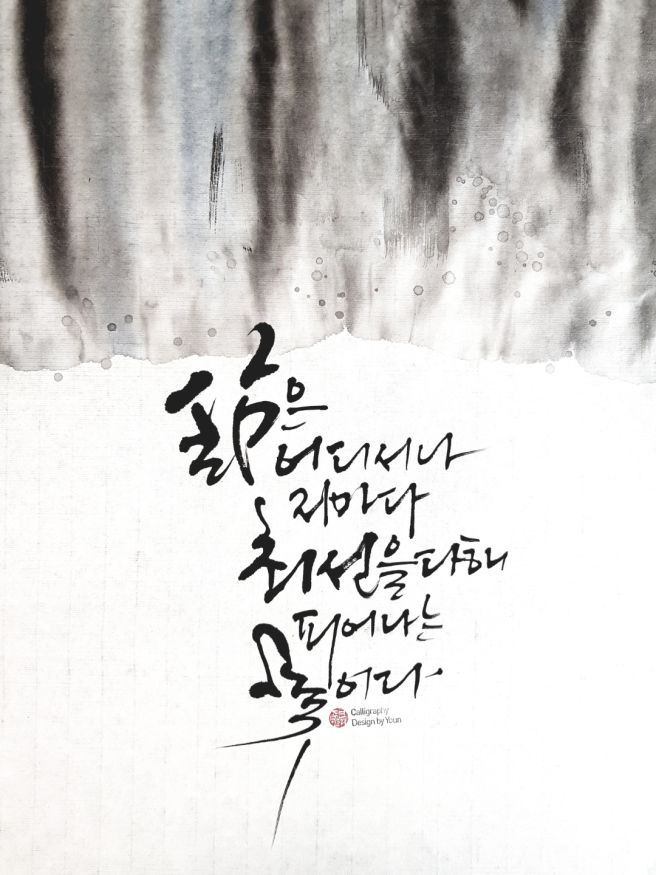 삶은
어디서나
저마다
최선을 다해
피어나는
꽃이다.
Calligraphy
Design by Youn